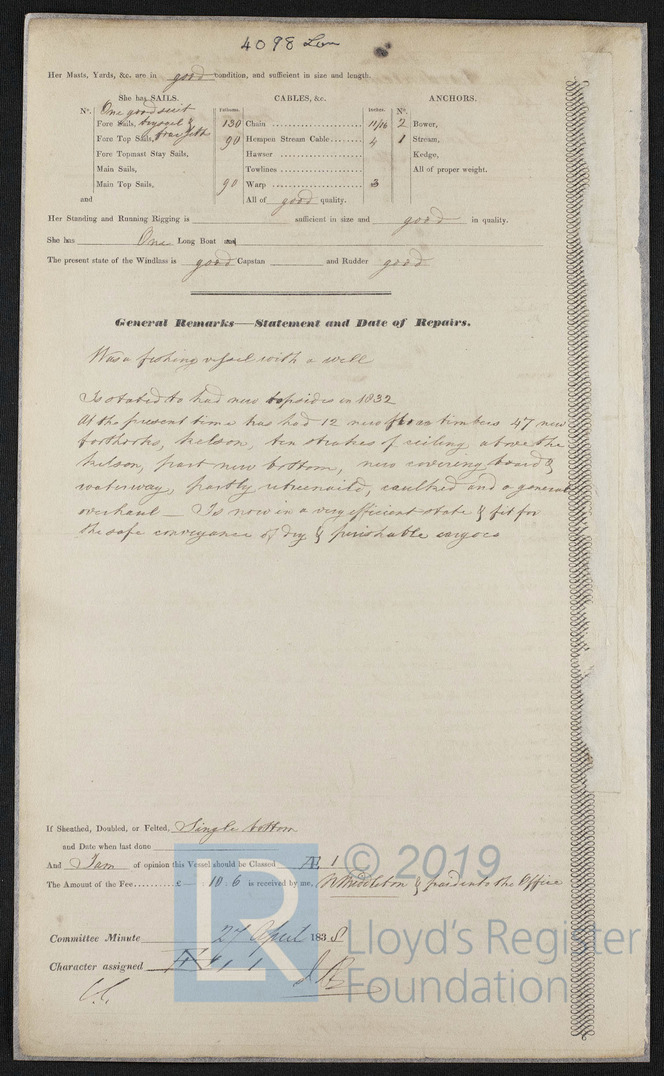 4098 Lon
Her Masts, Yards, &c. are in good condition, and sufficient in size and length.
She has SAILS. CABLES, &c. ANCHORS.
N°. One good suit Fathoms. Inches. N°.
Fore Sails, trysail & 130 Chain 11/16 2 Bower,
Fore Top Sails, 90 Hempen Stream Cable 4 1 Stream,
Fore Topmast Stay Sails, Hawser Kedge,
Main Sails, Towlines All of proper weight.
Main Top Sails, 90 Warp 3
and All of good quality.
Her Standing and Running Rigging is sufficient in size and good in quality.
She has One Long Boat and
The present state of the Windlass is good Capstan and Rudder good
General Remarks—Statement and Date of Repairs.
Was a fishing vessel with a well
Is stated to had new topsides in 1832
At the present time has had 12 new floor timbers 47 new
foothooks, kelson, ten strakes of ceiling above the
kelson, part new bottom, new covering board &
waterway, partly retreenaild, caulked and a general
overhaul — Is now in a very efficient state & fit for
the safe conveyance of dry & perishable cargoes
If Sheathed, Doubled, or Felted, Single bottom
and Date when last done
And I am of opinion this Vessel should be Classed Æ 1
The Amount of the Fee £ : 10 : 6 is received by me, Middleton & paid into the Office
Committee Minute 27 April 1838
Character assigned Æ 1
© 2019
LR
Lloyd's Register
Foundation